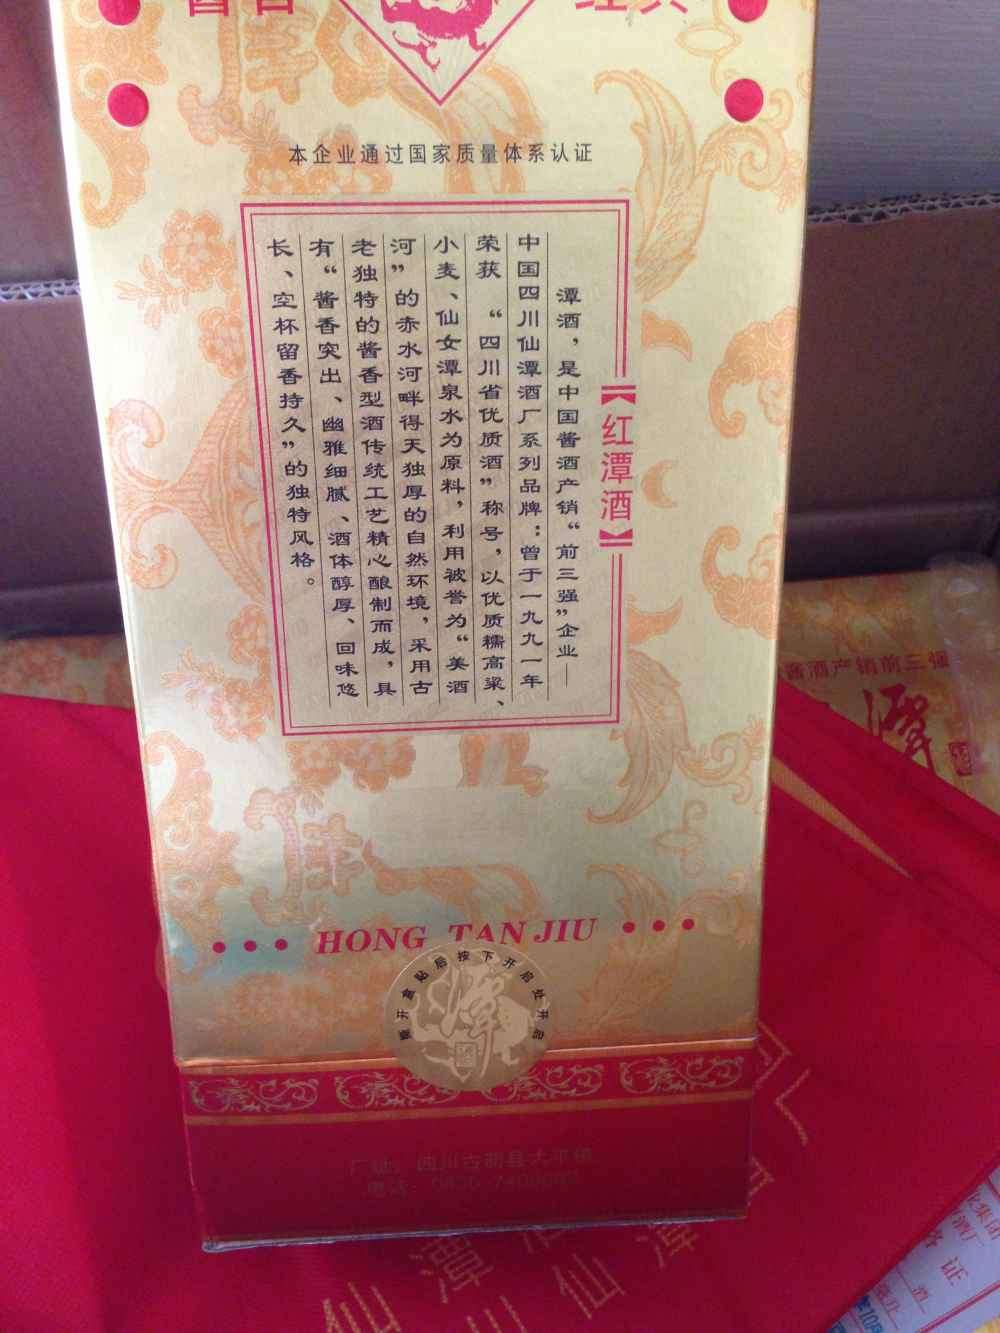 酱香
经典
本企业通过国家质量体系认证
【红潭酒】
潭酒，是中国酱酒产销“前三强”企业—
中国四川仙潭酒厂系列品牌：曾于一九九一年
荣获 “四川省优质酒”称号，以优质糯高粱、
小麦、仙女潭泉水为原料，利用被誉为“美酒
河”的赤水河畔得天独厚的自然环境，采用古
老独特的酱香型酒传统工艺精心酿制而成，具
有“酱香突出、幽雅细腻、酒体醇厚、回味悠
长、空杯留香持久”的独特风格。
HONG TAN JIU
撕开盒贴后按下开启处开启
潭
厂址：四川古蔺县太平镇
电话：0830-
酱酒产销前三强
潭
仙潭酒
川仙潭